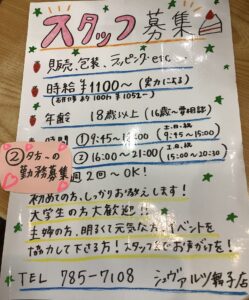 スタッフ募集
販売、包装、ラッピング・etc
時給 ¥1100〜 (実力による)
年齢 18歳以上 (16歳〜
① 9:45〜
土.日.祝
9:45〜15:00
② 16:00〜21:00
土.日.祝
15:00〜20:30
②夕方〜の
勤務募集
週2回〜OK!
初めての方、しっかりお教えします!
大学生の方大歓迎!!
主婦の方、明るくて元気な方、イベントを
協力して下さる方! スタッフまでお声がけを!
TEL 785-7108 シュヴァルツ舞子店